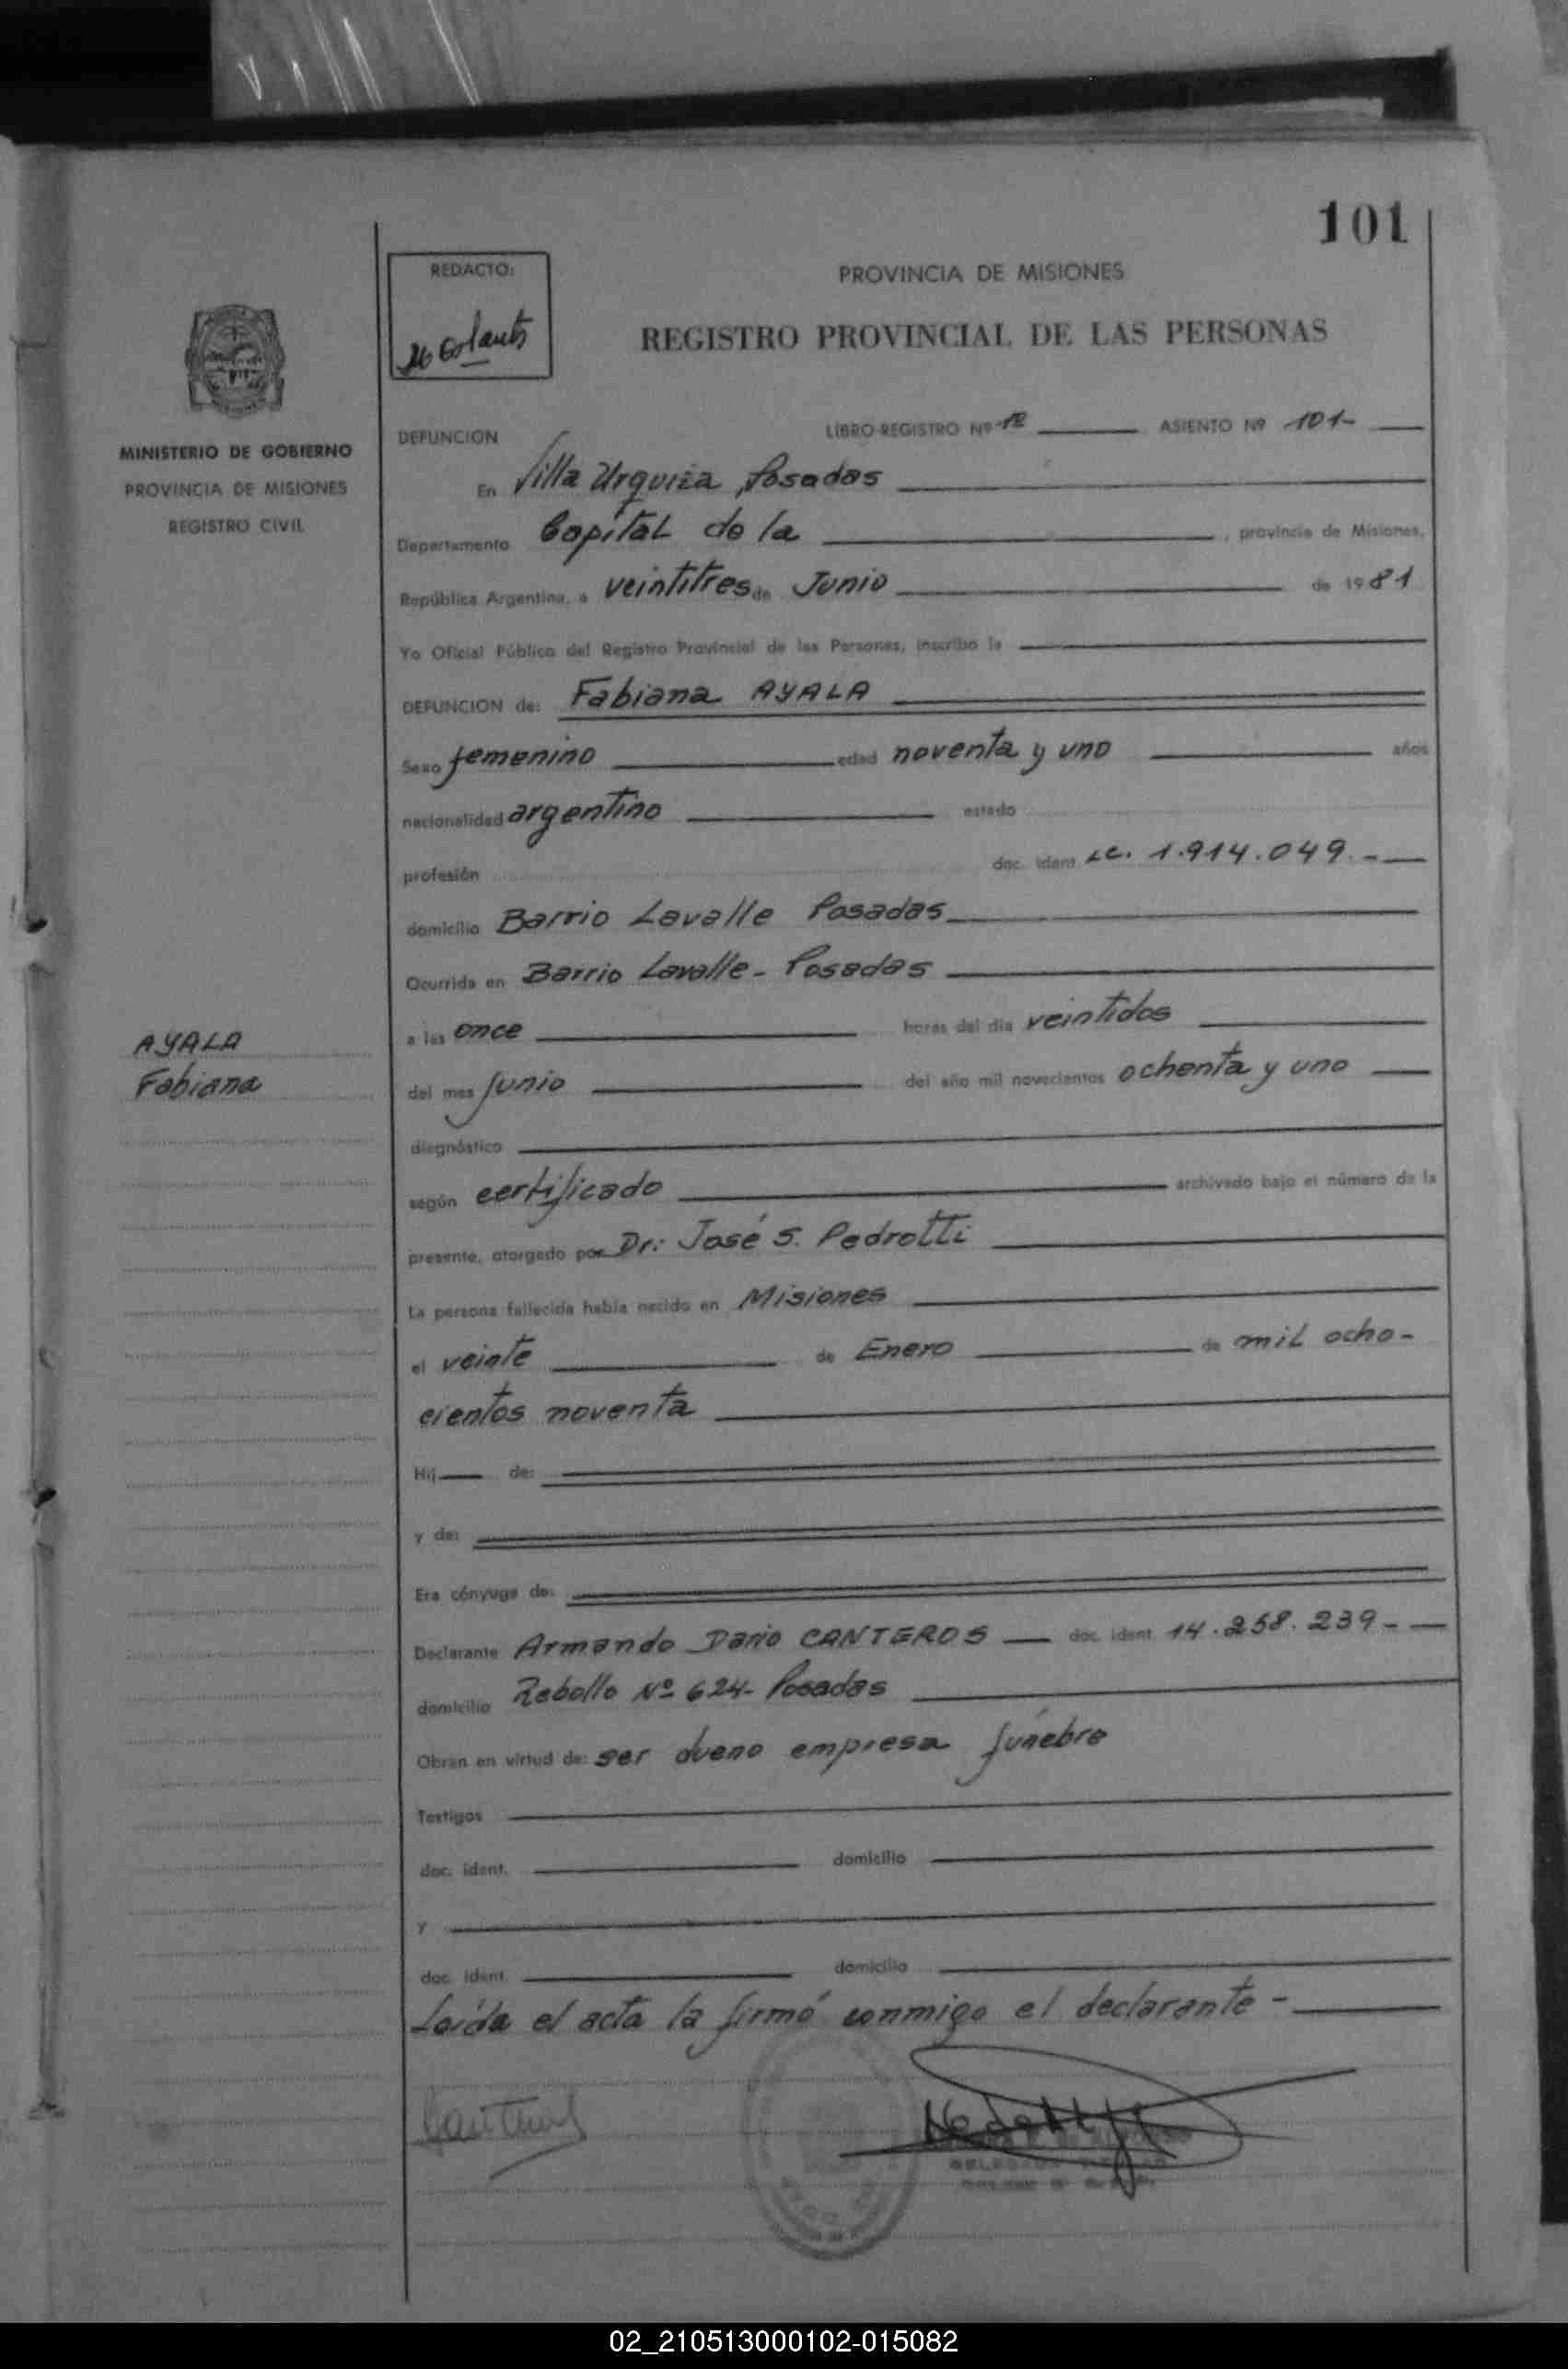 101
REDACTO:
PROVINCIA DE MISIONES
REGISTRO PROVINCIAL DE LAS PERSONAS
MINISTERIO DE GOBIERNO
PROVINCIA DE MISIONES
REGISTRO CIVIL
DEFUNCION LIBRO-REGISTRO Nº 12 ASIENTO Nº 101-
En Villa Urquiza, Posadas
Departamento Capital de la , provincia de Misiones,
República Argentina, a veintitres de Junio de 1981
Yo Oficial Público del Registro Provincial de las Personas, inscribo la
DEFUNCION de: Fabiana AYALA
Sexo femenino edad noventa y uno años
nacionalidad argentino estado
profesión doc. ident. LC. 1.914.049.-
domicilio Barrio Lavalle Posadas
Ocurrida en Barrio Lavalle - Posadas
a las once horas del día veintidos
del mes Junio del año mil novecientos ochenta y uno
AYALA
Fabiana
diagnóstico
según certificado archivado bajo el número de la
presente, otorgado por Dr: José S. Pedrotti
La persona fallecida había nacido en Misiones
el veinte de Enero de mil ocho-
cientos noventa
Hij de:
y de:
Era cónyuge de:
Declarante Armando Dario CANTEROS doc. ident. 14.258.239-
domicilio Rebollo Nº 624- Posadas
Obran en virtud de: ser dueno empresa fúnebre
Testigos
doc. ident. domicilio
y
doc. ident. domicilio
Leída el acta la firmó conmigo el declarante -
02_210513000102-015082